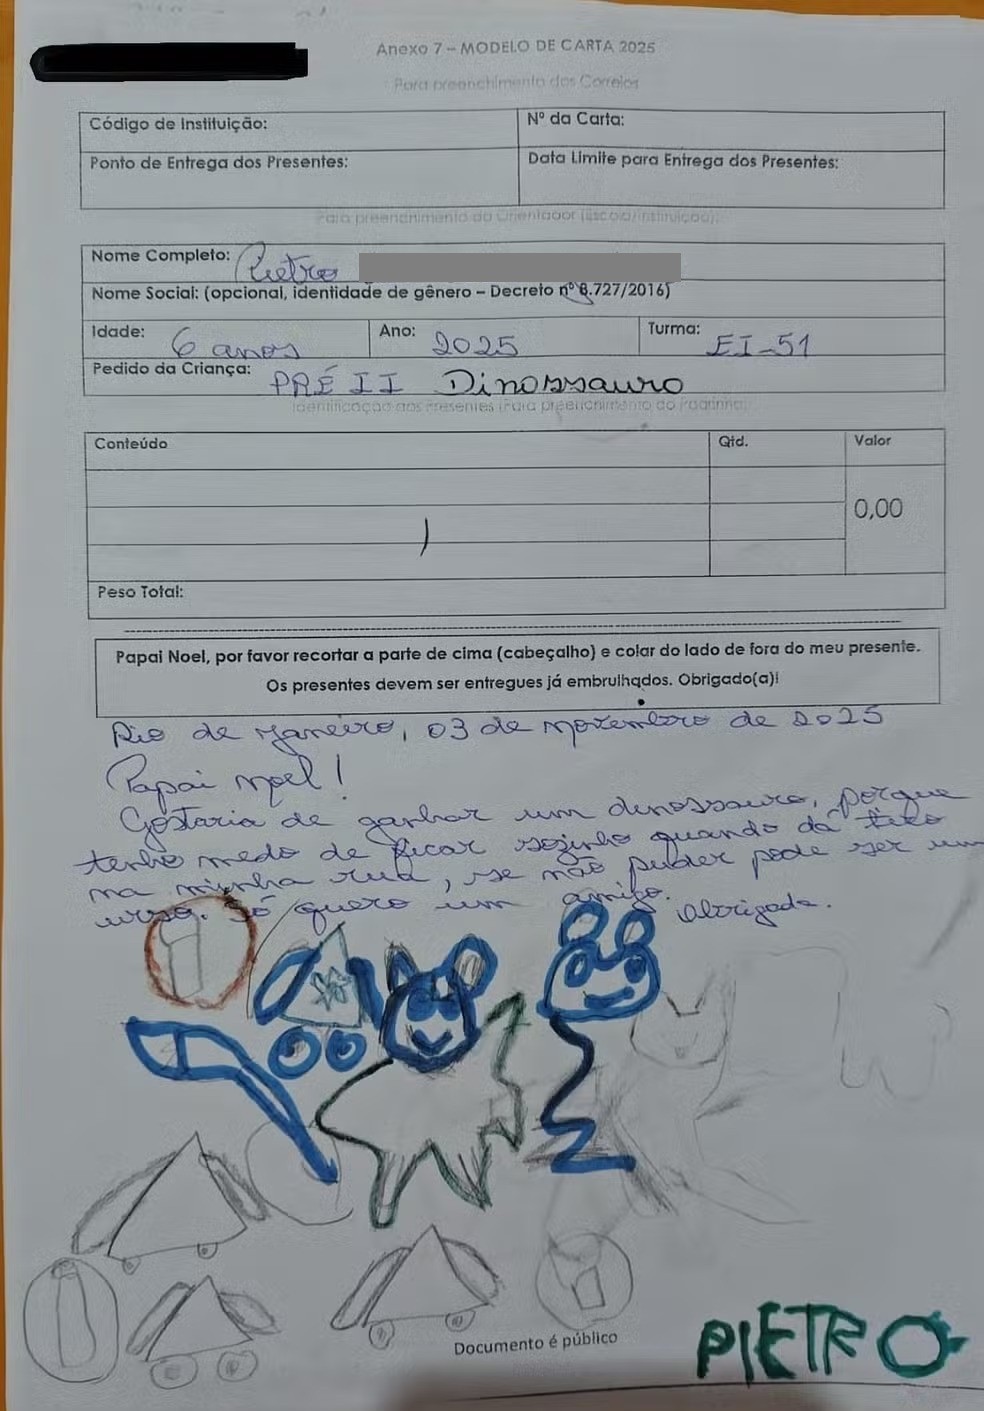 Anexo 7 – MODELO DE CARTA 2025
Para preenchimento dos Correios
Código de Instituição:
Nº da Carta:
Ponto de Entrega dos Presentes:
Data Limite para Entrega dos Presentes:
Para preenchimento do Orientador (Escola/Instituição):
Nome Completo: Pietro
Nome Social: (opcional, identidade de gênero – Decreto nº 8.727/2016)
Idade: 6 anos
Ano: 2025
Turma: EI-51
Pedido da Criança: PRÉ II Dinossauro
Identificação dos Presentes (Para preenchimento do Padrinho)
Conteúdo
Qtd.
Valor
0,00
Peso Total:
Papai Noel, por favor recortar a parte de cima (cabeçalho) e colar do lado de fora do meu presente.
Os presentes devem ser entregues já embrulhados. Obrigado(a)!
Rio de Janeiro, 03 de novembro de 2025
Papai Noel!
Gostaria de ganhar um dinossauro, porque
tenho medo de ficar sozinho quando dá tiro
na minha rua, se não puder pode ser um
urso. Só quero um amigo.
Obrigada.
Documento é público
PIETRO